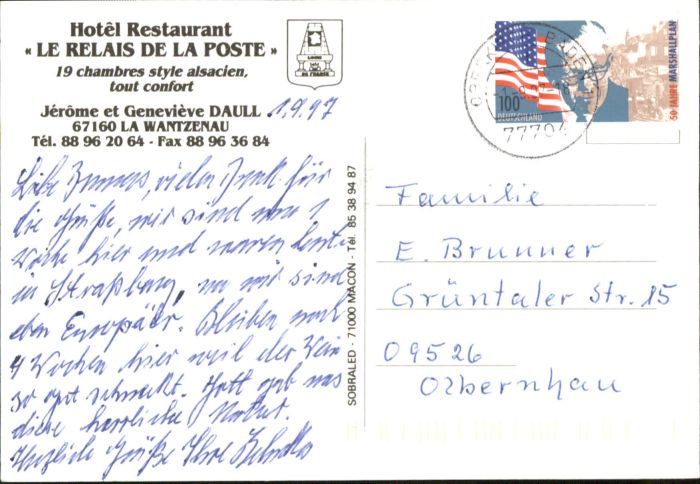 Hotêl Restaurant
« LE RELAIS DE LA POSTE »
19 chambres style alsacien,
tout confort
Jérôme et Geneviève DAULL
67160 LA WANTZENAU
Tél. 88 96 20 64 - Fax 88 96 36 84
1.9.97
vielen Dank für
die Grüße, wir sind nun 1
Woche hier und waren heute
in Straßburg, wo wir sind
eben Europäer. Bleiben noch
4 Wochen hier weil der Wein
so gut schmeckt. Gott gab uns
diese herrliche Natur.
Herzliche Grüße Ihre
SOBRALED - 71000 MACON - Tél. 85 38 94 87
100
DEUTSCHLAND
50 JAHRE MARSHALLPLAN
77704
Familie
E. Brunner
Grüntaler Str. 15
09526
Olbernhau